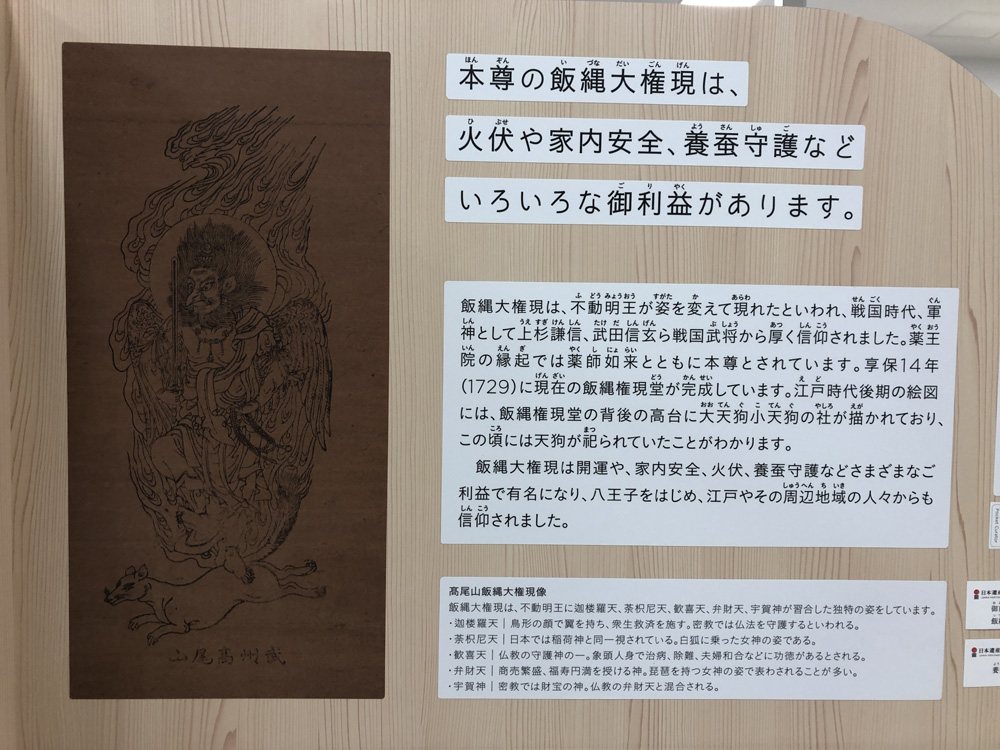 本尊の飯縄大権現は、
火伏や家内安全、養蚕守護など
いろいろな御利益があります。
飯縄大権現は、不動明王が姿を変えて現れたといわれ、戦国時代、軍
神として上杉謙信、武田信玄ら戦国武将から厚く信仰されました。薬王
院の縁起では薬師如来とともに本尊とされています。享保14年
(1729)に現在の飯縄権現堂が完成しています。江戸時代後期の絵図
には、飯縄権現堂の背後の高台に大天狗小天狗の社が描かれており、
この頃には天狗が祀られていたことがわかります。
飯縄大権現は開運や、家内安全、火伏、養蚕守護などさまざまなご
利益で有名になり、八王子をはじめ、江戸やその周辺地域の人々からも
信仰されました。
髙尾山飯縄大権現像
飯縄大権現は、不動明王に迦楼羅天、荼枳尼天、歓喜天、弁財天、宇賀神が習合した独特の姿をしています。
・迦楼羅天｜鳥形の顔で翼を持ち、衆生救済を施す。密教では仏法を守護するといわれる。
・荼枳尼天｜日本では稲荷神と同一視されている。白狐に乗った女神の姿である。
・歓喜天｜仏教の守護神の一。象頭人身で治病、除難、夫婦和合などに功徳があるとされる。
・弁財天｜商売繁盛、福寿円満を授ける神。琵琶を持つ女神の姿で表わされることが多い。
・宇賀神｜密教では財宝の神。仏教の弁財天と混合される。
山尾髙州武
Pocket Curator
日本遺産
日本遺産